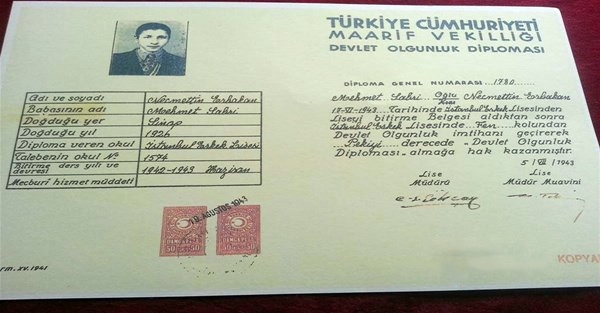 TÜRKİYE CÜMHURİYETİ
MAARİF VEKİLLİĞİ
DEVLET OLGUNLUK DİPLOMASI
DİPLOMA GENEL NUMARASI . 1780 .
Adı ve soyadı Necmettin Erbakan
Babasının adı Mehmet Sabri
Doğduğu yer Sinop
Doğduğu yıl 1926
Diploma veren okul İstanbul Erkek Lisesi
Talebenin okul No 1574
Bitirme ders yılı ve devresi 1942-1943 Haziran
Mecburî hizmet müddeti
Mehmet Sabri Oğlu Necmettin Erbakan
Kızı
18-VI-1943 Tarihinde İstanbul Erkek Lisesinden
Liseyi bitirme Belgesi aldıktan sonra
İstanbul Erkek Lisesinde Fen kolundan
Devlet Olgunluk imtihanı geçirerek
Pekiyi derecede Devlet Olgunluk
Diploması almağa hak kazanmıştır.
5 / VII / 1943
Lise Müdürü
Lise Müdür Muavini
AGUSTOS 1943
DAMGA
50 50
50 50
rm. XV. 1941
KOPYA